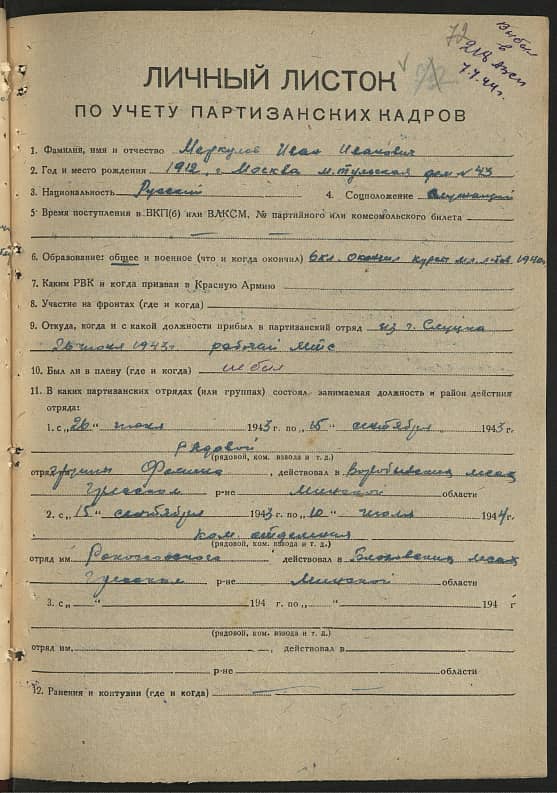 72
Выбыл
в
218 АЗСП
7.7.44 г.
ЛИЧНЫЙ ЛИСТОК
ПО УЧЕТУ ПАРТИЗАНСКИХ КАДРОВ
1. Фамилия, имя и отчество Меркулов Иван Иванович
2. Год и место рождения 1912, г. Москва м. Тульская дом № 43
3. Национальность Русский 4. Соцположение Служащий
5 Время поступления в ВКП(б) или ВЛКСМ, № партийного или комсомольского билета
6. Образование: общее и военное (что и когда окончил) 6 кл. окончил курсы мл. л-тов. 1940г.
7. Каким РВК и когда призван в Красную Армию
8. Участие на фронтах (где и когда)
9. Откуда, когда и с какой должности прибыл в партизанский отряд из г. Слуцка
26 июня 1943г рабочий МТС
10. Был ли в плену (где и когда) не был
11. В каких партизанских отрядах (или группах) состоял, занимаемая должность и район действия
отряда:
1. с „26“ июня 1943 г. по „15“ сентября 1943 г.
Рядовой
(рядовой, ком. взвода и т. д.)
отряд группы Фомина, действовал в лесах
Гресском р-не Минской области
2. с „15“ сентября 1943 г. по „10“ июля 1944 г.
ком. отделения
(рядовой, ком. взвода и т. д.)
отряд им. Рокоссовского, действовал в лесах
Гресском р-не Минской области
3. с „ “ 194 г. по „ “ 194 г
(рядовой, ком. взвода и т. д.)
отряд им., действовал в
р-не области
12. Ранения и контузии (где и когда)